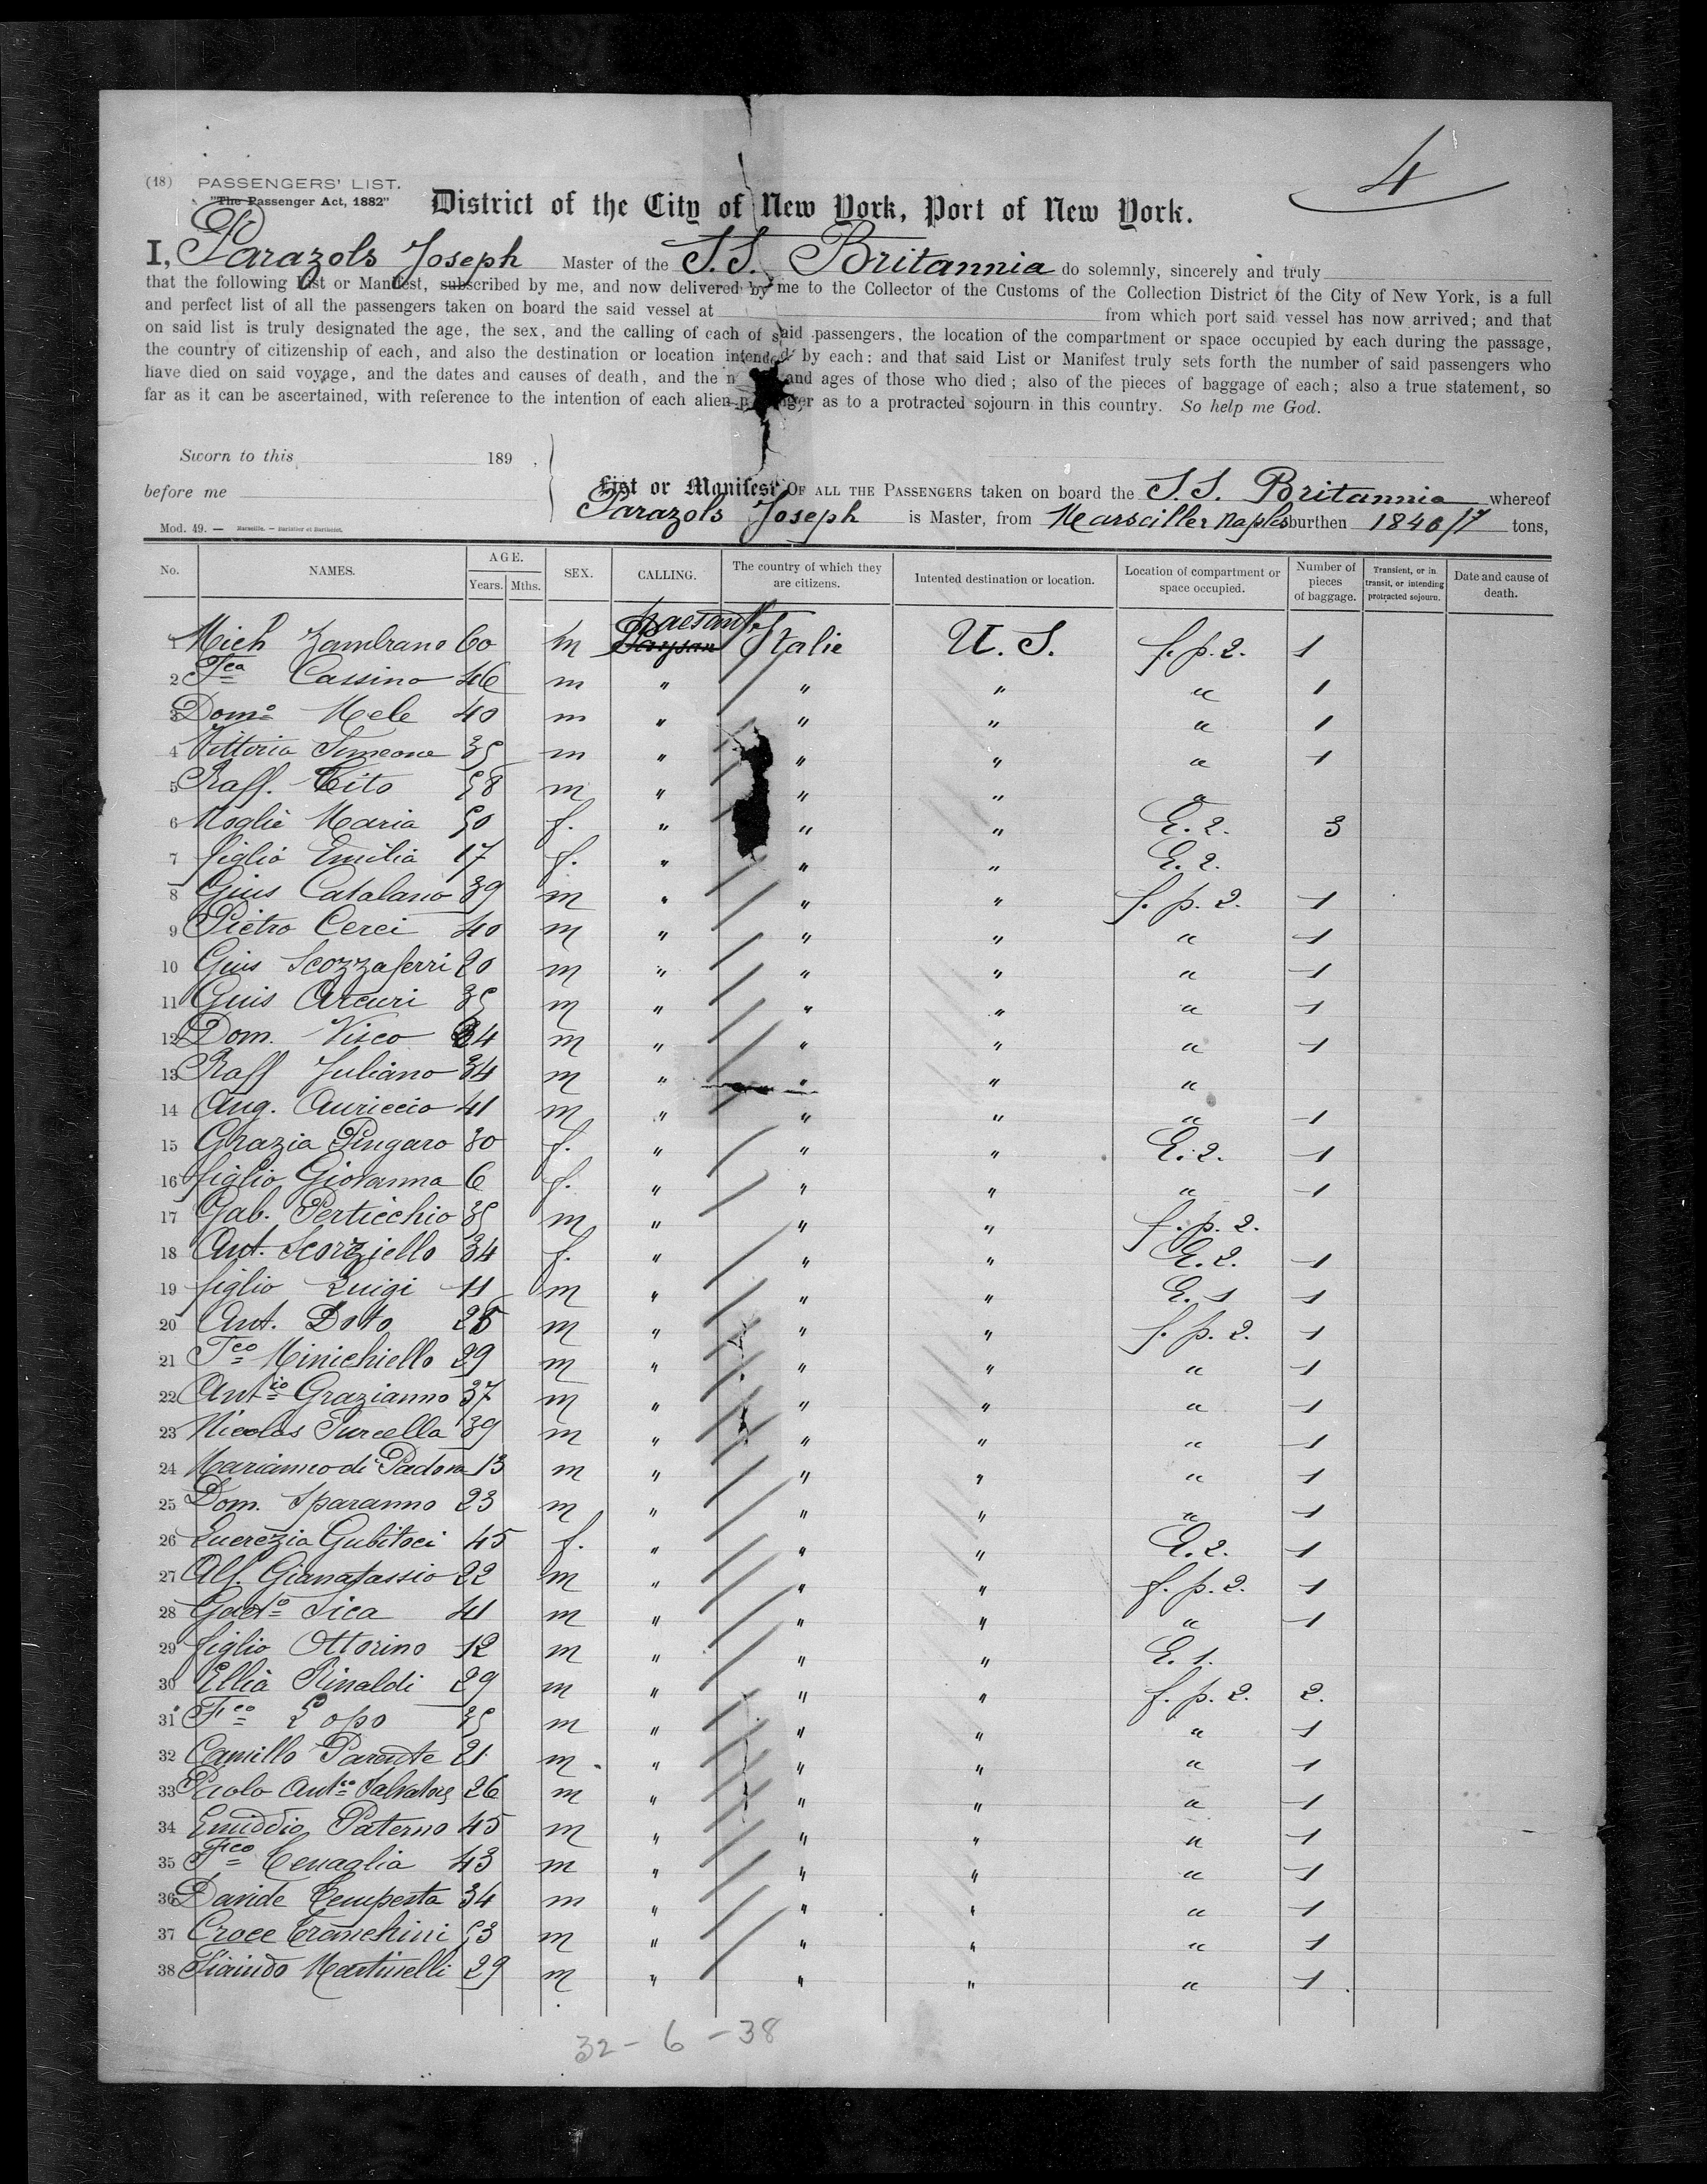 4
(18) PASSENGERS' LIST.
"The Passenger Act, 1882"
District of the City of New York, Port of New York.
I, Parazols Joseph Master of the S.S. Britannia do solemnly, sincerely and truly
that the following List or Manifest, subscribed by me, and now delivered by me to the Collector of the Customs of the Collection District of the City of New York, is a full
and perfect list of all the passengers taken on board the said vessel at from which port said vessel has now arrived; and that
on said list is truly designated the age, the sex, and the calling of each of said passengers, the location of the compartment or space occupied by each during the passage,
the country of citizenship of each, and also the destination or location intended by each: and that said List or Manifest truly sets forth the number of said passengers who
have died on said voyage, and the dates and causes of death, and the n and ages of those who died; also of the pieces of baggage of each; also a true statement, so
far as it can be ascertained, with reference to the intention of each alien p nger as to a protracted sojourn in this country. So help me God.
Sworn to this 189 ,
before me
List or Manifest OF ALL THE PASSENGERS taken on board the S.S. Britannia whereof
Parazols Joseph is Master, from Marseilles Naples burthen 1840/17 tons,
Mod. 49. — Marseille. — Barlatier et Barthelet.
No. NAMES. AGE. Years. Mths. SEX. CALLING. The country of which they are citizens. Intented destination or location. Location of compartment or space occupied. Number of pieces of baggage. Transient, or in transit, or intending protracted sojourn. Date and cause of death.
1 Mich Zambrano 60 m Paysan Italie U.S. f.p.2. 1
2 Fca Cassino 46 m " " " " 1
3 Domo Mele 40 m " " " " 1
4 Vittoria Simeone 35 m " " " " 1
5 Raff. Tito 58 m " " " "
6 Moglie Maria 50 f. " " " E.2. 3
7 figlia Emilia 17 f. " " " E.2.
8 Gius Catalano 39 m " " " f.p.2. 1
9 Pietro Cerci 40 m " " " " 1
10 Gius Scozzaferri 20 m " " " " 1
11 Guis Arcuri 35 m " " " " 1
12 Dom. Visco 34 m " " " " 1
13 Raff Juliano 34 m " " " "
14 Ang. Auriccio 41 m " " " " 1
15 Grazia Pingaro 30 f. " " " E.2. 1
16 figlio Giovanna 6 f. " " " " 1
17 Gab. Perticchio 35 m " " " f.p.2.
18 Ant. Scorziello 34 f. " " " E.2. 1
19 figlio Luigi 11 m " " " E.1 1
20 Ant. Doto m " " " f.p.2. 1
21 Fco Minichiello 29 m " " " " 1
22 Antio Grazianno 37 m " " " " 1
23 Nicolas Turcella 39 m " " " " 1
24 Marianno di Padova 13 m " " " " 1
25 Dom. Sparanno 23 m " " " " 1
26 Lucrezia Gubitoci 45 f. " " " E.2. 1
27 Alf. Gianatassio 22 m " " " f.p.2. 1
28 Gaeto Sica 41 m " " " " 1
29 figlio Ottorino 12 m " " " E.1.
30 Ellia Rinaldi 29 m " " " f.p.2. 2.
31 Fco Lopo 35 m " " " " 1
32 Camillo Parente 21 m " " " " 1
33 Paolo Anto Salvatore 26 m " " " " 1
34 Emiddio Paterno 45 m " " " " 1
35 Fco Tenaglia 43 m " " " " 1
36 Davide Tempesta 34 m " " " " 1
37 Croce Franchini 53 m " " " " 1
38 Martinelli 29 m " " " " 1
32 – 6 – 38